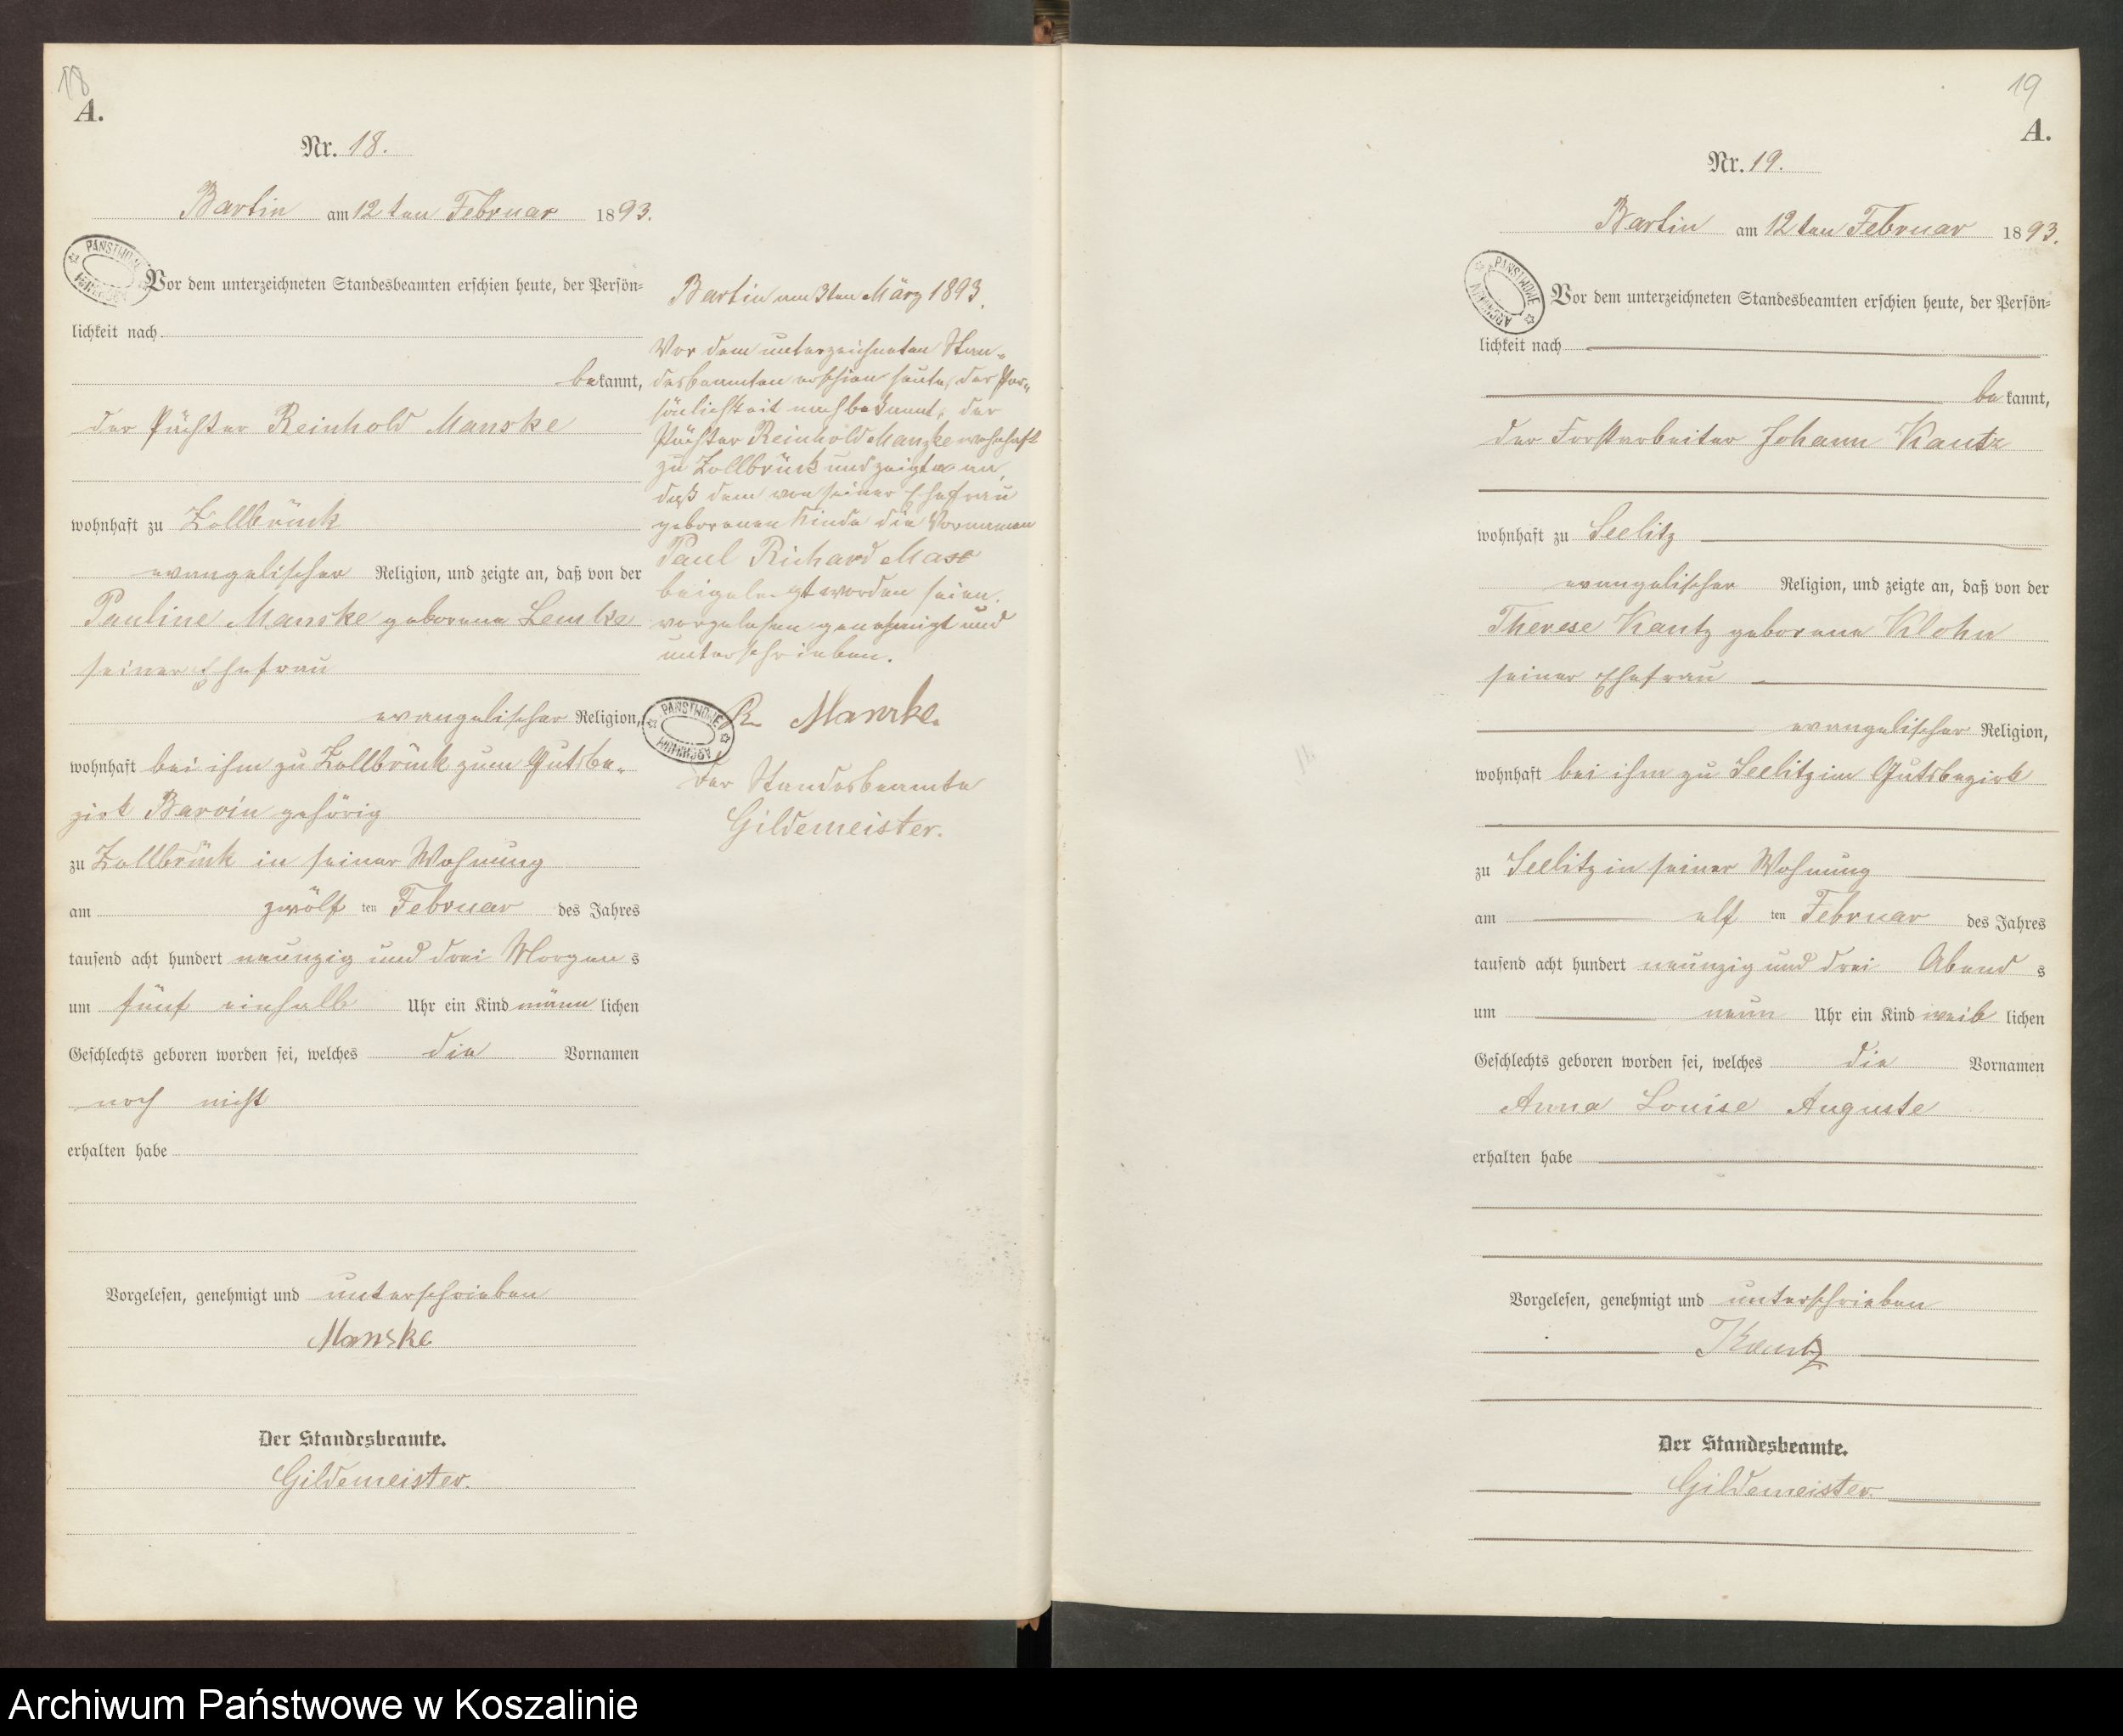 18
A.
Nr. 18.
Bartin am 12 ten Februar 1893.
PAŃSTWOWE ARCHIWUM
Vor dem unterzeichneten Standesbeamten erschien heute, der Persön=
lichkeit nach
bekannt,
der Pächter Reinhold Manske
wohnhaft zu Zollbrück
evangelischer Religion, und zeigte an, daß von der
Pauline Manske geborene Lemke
seiner Ehefrau
evangelischer Religion,
wohnhaft bei ihm zu Zollbrück zum Gutsbe-
zirk Barvin gehörig
zu Zollbrück in seiner Wohnung
am zwölf ten Februar des Jahres
tausend acht hundert neunzig und drei Morgens
um fünf einhalb Uhr ein Kind männlichen
Geschlechts geboren worden sei, welches die Vornamen
noch nicht
erhalten habe
Vorgelesen, genehmigt und unterschrieben
Manske
Der Standesbeamte.
Gildemeister.
Bartin am 3ten März 1893.
Vor dem unterzeichneten Stan-
desbeamten erschien heute, der Per-
sönlichkeit nach bekannt, der
Pächter Reinhold Manzke wohnhaft
zu Zollbrück und zeigte an,
daß dem von seiner Ehefrau
geborenen Kinde die Vornamen
Paul Richard Max
beigelegt worden seien.
vorgelesen genehmigt und
unterschrieben.
PAŃSTWOWE ARCHIWUM
R. Manske.
Der Standesbeamte
Gildemeister.
19
A.
Nr. 19.
Bartin am 12 ten Februar 1893.
PAŃSTWOWE ARCHIWUM
Vor dem unterzeichneten Standesbeamten erschien heute, der Persön=
lichkeit nach
bekannt,
der Forstarbeiter Johann Kautz
wohnhaft zu Seelitz
evangelischer Religion, und zeigte an, daß von der
Therese Kautz geborene Klohn
seiner Ehefrau
evangelischer Religion,
wohnhaft bei ihm zu Seelitz im Gutsbezirk
zu Seelitz in seiner Wohnung
am elf ten Februar des Jahres
tausend acht hundert neunzig und drei Abends
um neun Uhr ein Kind weiblichen
Geschlechts geboren worden sei, welches die Vornamen
Anna Louise Auguste
erhalten habe
Vorgelesen, genehmigt und unterschrieben
Kautz
Der Standesbeamte.
Gildemeister.
Archiwum Państwowe w Koszalinie